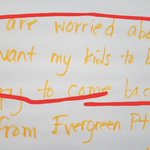 are worried abou
want my kids to b
ry to come bac
from Evergreen Pt